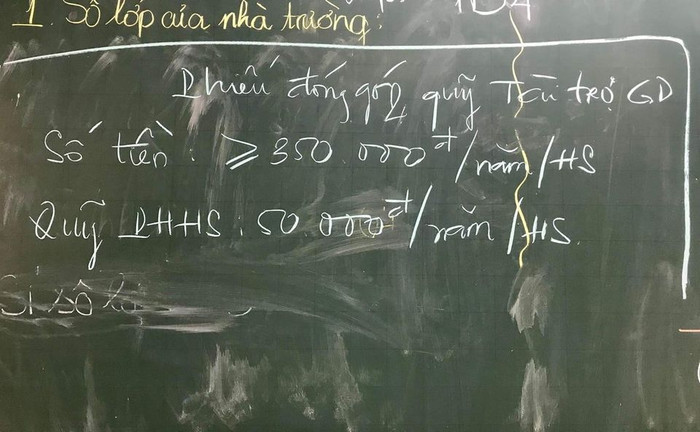 1. Số lớp của nhà trường:
Phiếu đóng góp quỹ Tài trợ GD
Số tiền: ≥ 350.000đ/năm/HS
Quỹ PHHS: 50.000đ/năm/HS
Sĩ số